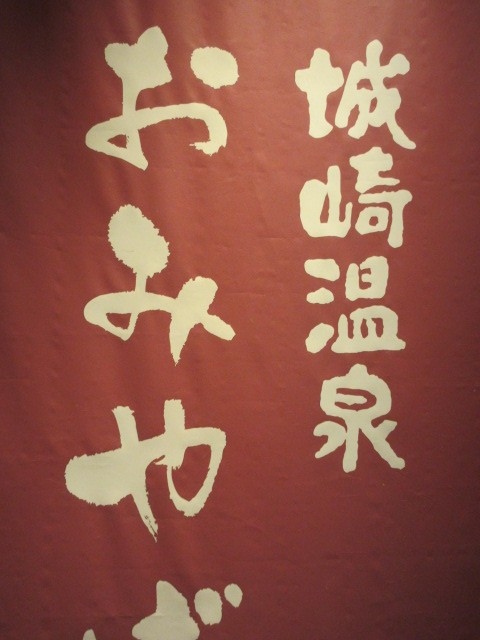 城崎温泉
おみやげ